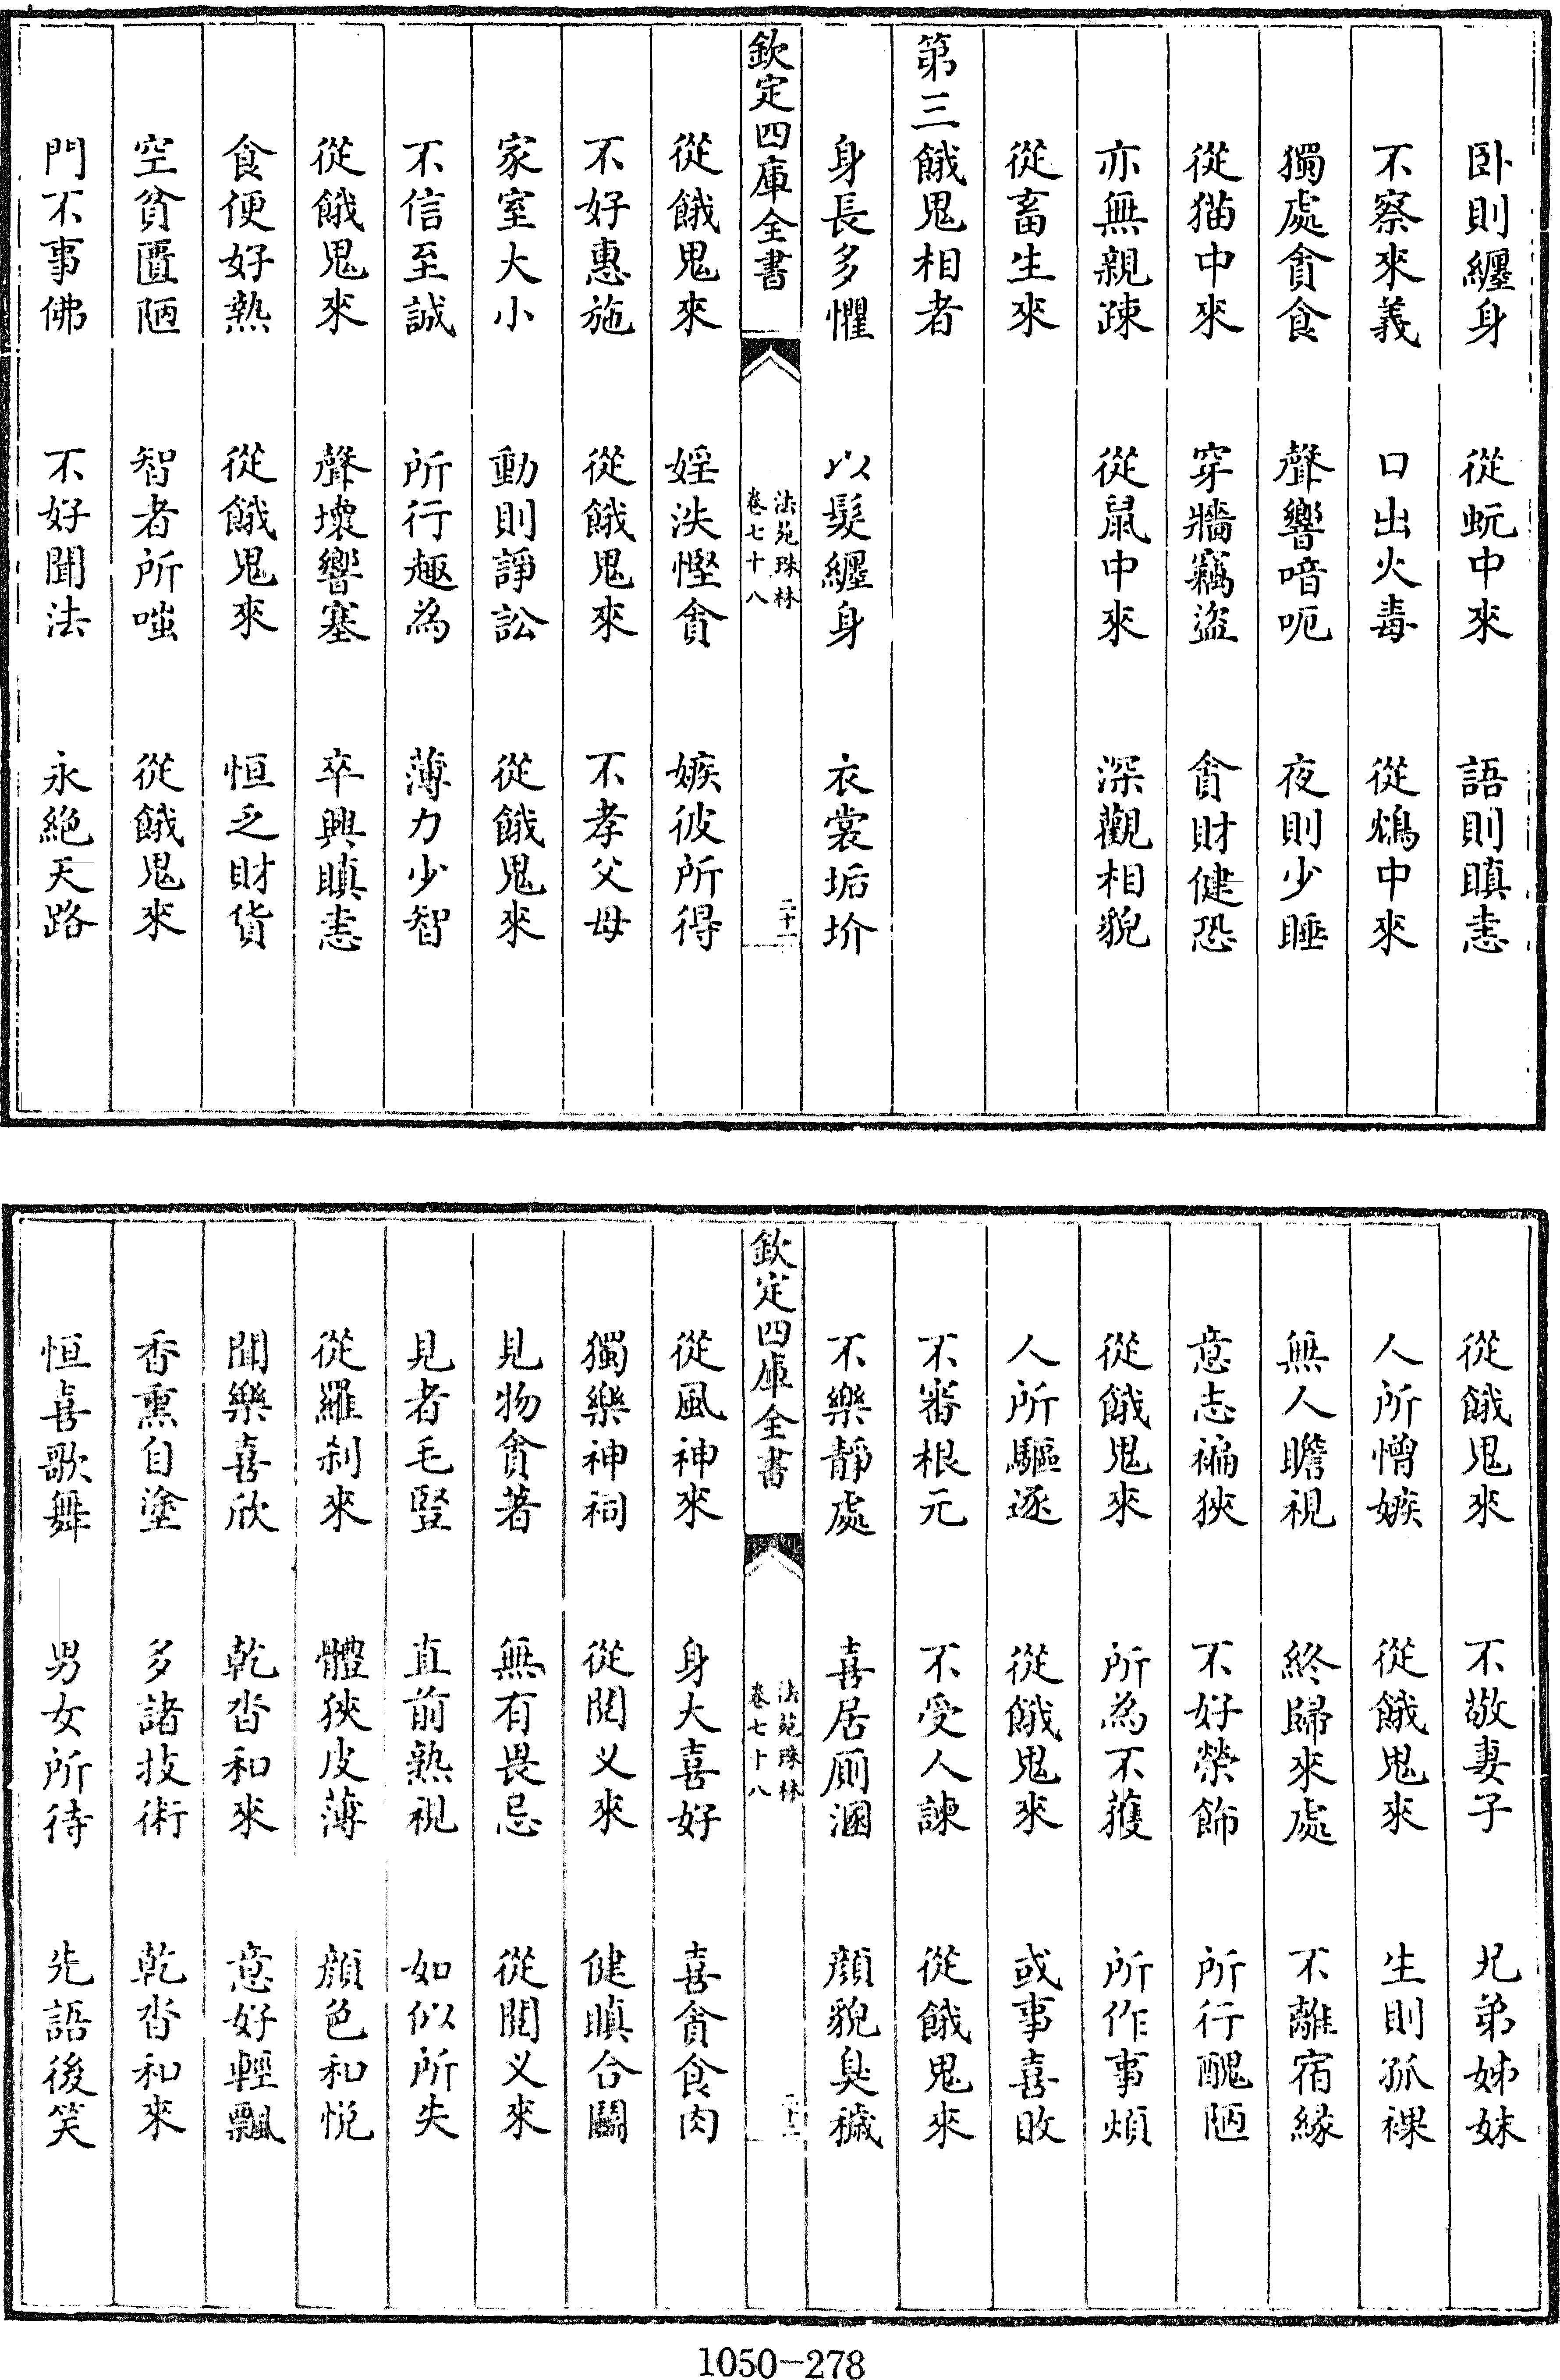 卧則纏身　從蚖中來　語則瞋恚
不察來義　口出火毒　從鴆中來
獨處貪食　聲響喑呃　夜則少睡
從猫中來　穿牆竊盜　貪財健恐
亦無親疎　從鼠中來　深觀相貌
從畜生來
第三餓鬼相者
身長多懼　以髮纏身　衣裳垢圿
欽定四庫全書　法苑珠林　卷七十八　二十一
從餓鬼來　婬泆慳貪　嫉彼所得
不好惠施　從餓鬼來　不孝父母
家室大小　動則諍訟　從餓鬼來
不信至誠　所行趣為　薄力少智
從餓鬼來　聲壞響塞　卒興瞋恚
食便好熱　從餓鬼來　恒乏財貨
空貧匱陋　智者所嗤　從餓鬼來
門不事佛　不好聞法　永絕天路
從餓鬼來　不敬妻子　兄弟姊妹
人所憎嫉　從餓鬼來　生則孤裸
無人瞻視　終歸來處　不離宿緣
意志褊狹　不好榮飾　所行醜陋
從餓鬼來　所為不獲　所作事煩
人所驅逐　從餓鬼來　或事喜敗
不審根元　不受人諫　從餓鬼來
不樂靜處　喜居厠溷　顔貌臭穢
欽定四庫全書　法苑珠林　卷七十八　二十二
從風神來　身大喜好　喜貪食肉
獨樂神祠　從閱义來　健瞋合鬭
見物貪著　無有畏忌　從閱义來
見者毛竪　直前熟視　如似所失
從羅刹來　體狹皮薄　顔色和悅
聞樂喜欣　乾沓和來　意好輕飄
香熏自塗　多諸技術　乾沓和來
恒喜歌舞　男女所待　先語後笑
1050-278